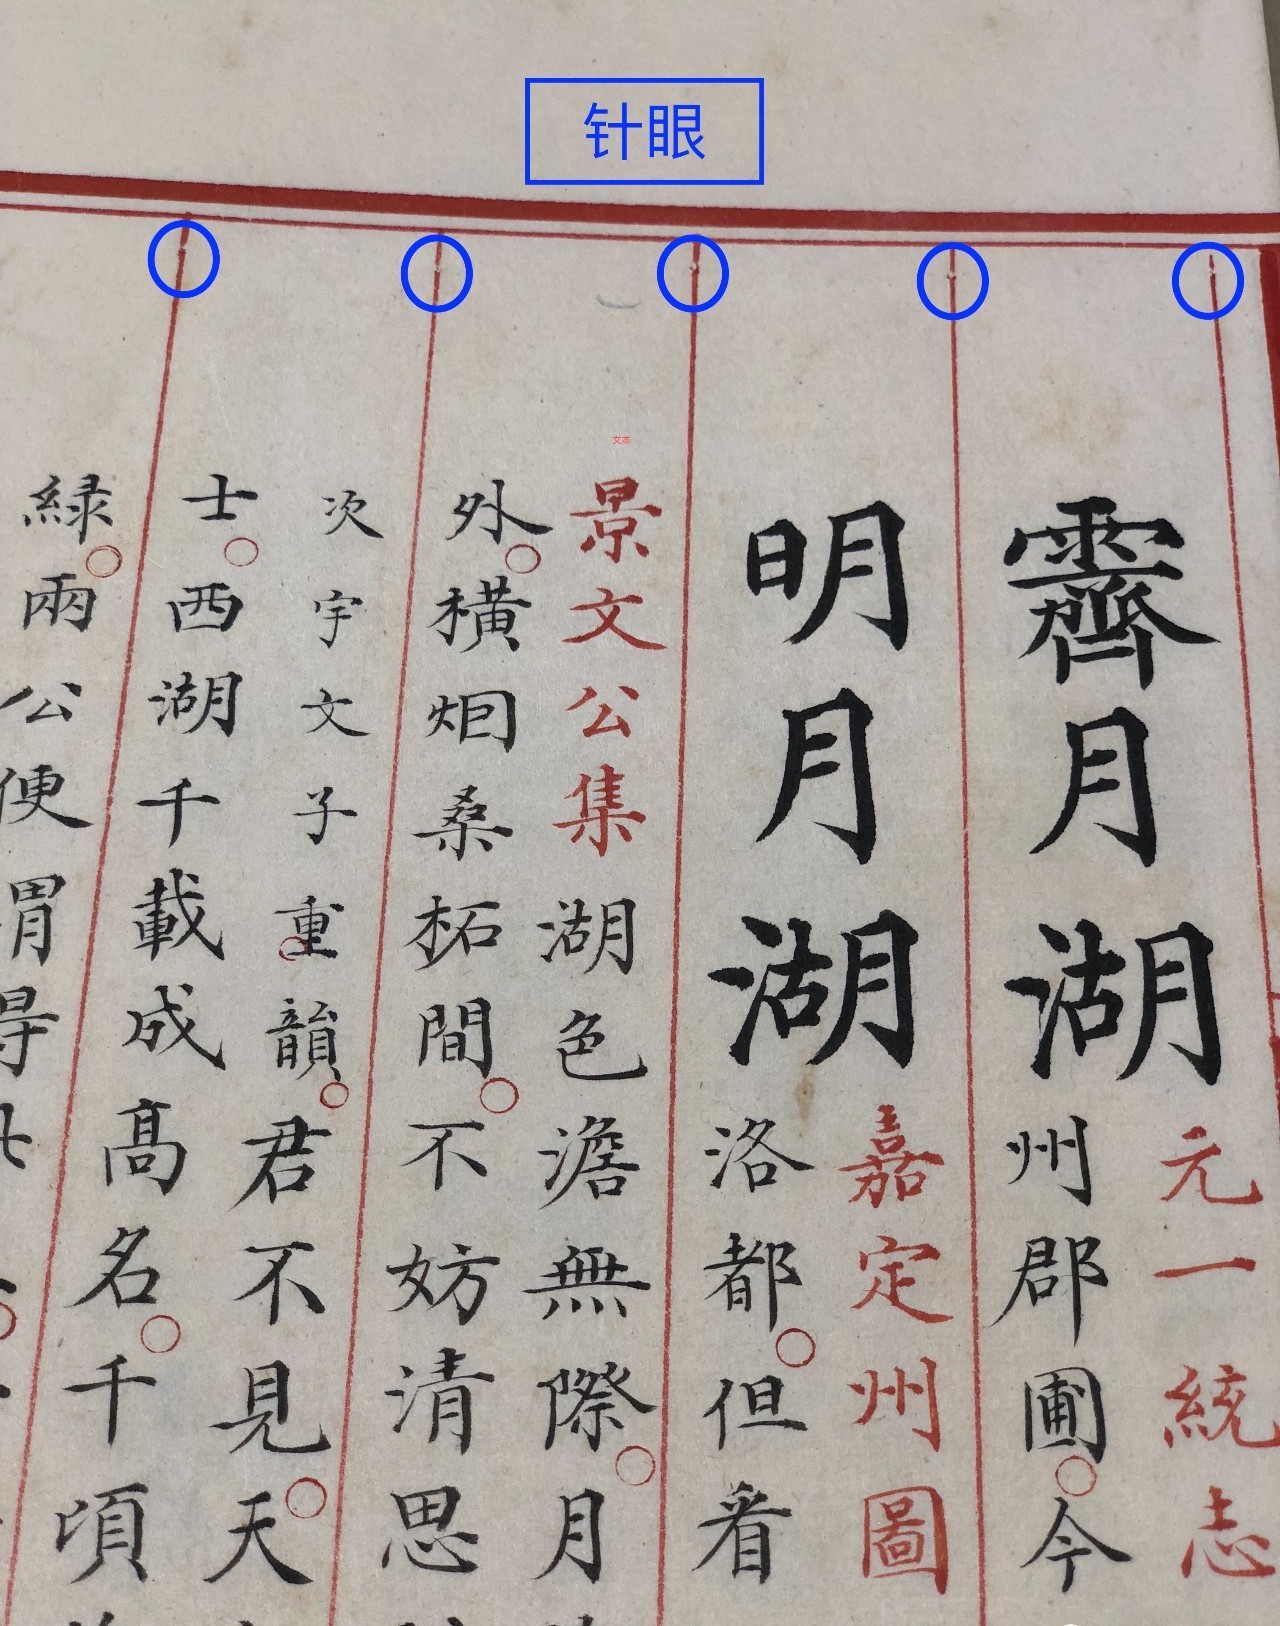 针眼
文本
霽月湖
元一統志
州郡圃今
明月湖
嘉定州圖
洛都但看
景文公集湖色澹無際月
外橫烟桑柘間不妨清思
次宇文子重韻君不見天
士西湖千載成高名千頃
緑兩公便謂得